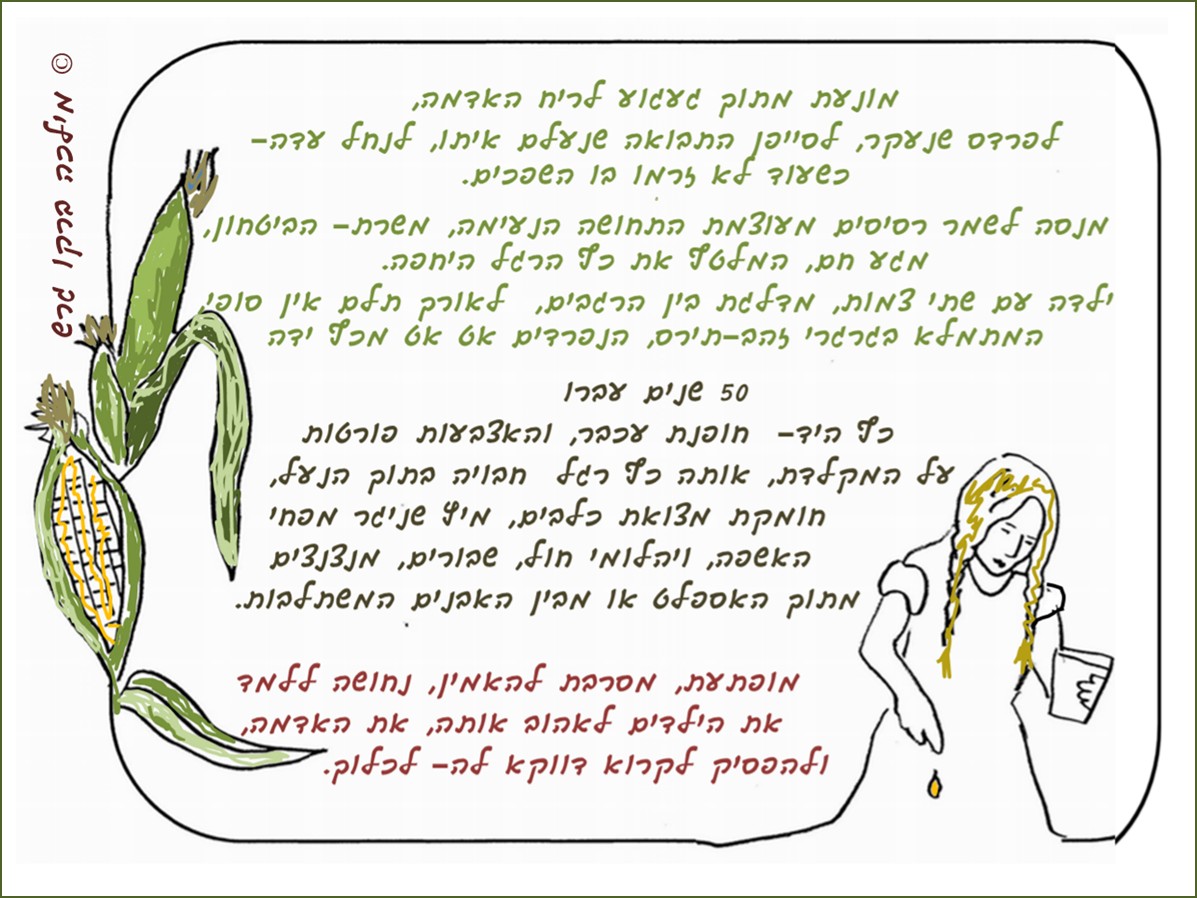 מונעת מתוך געגוע לריח האדמה,
לפרדס שנעקר, לסייפן התבואה שנעלם איתו, לנחל עדה–
כשעוד לא זרמו בו השפכים.
מנסה לשמר רסיסים מעוצמת התחושה הנעימה, משרת– הביטחון,
מגע חם, המלטף את כף הרגל היחפה.
ילדה עם שתי צמות, מדלגת בין הרגבים, לאורק תלם אין סופי,
המתמלא בגרגרי זהב–תירס, הנפרדים אט אט מכף ידה
50 שנים עברו
כף היד– חופנת עכבר, והאצבעות פורטות
על המקלדת, אותה כף רגל חבויה בתוך הנעל,
חומקת מצואת כלבים, מיץ שניגר מפחי
האשפה, ויהלומי חול, שבורים, מנצנצים
מתוך האספלט או מבין האבנים המשתלבות.
מופתעת, מסרבת להאמין, נחושה ללמד
את הילדים לאהוב אותה, את האדמה,
ולהפסיק לקרוא דווקא לה– לכלוך.
©